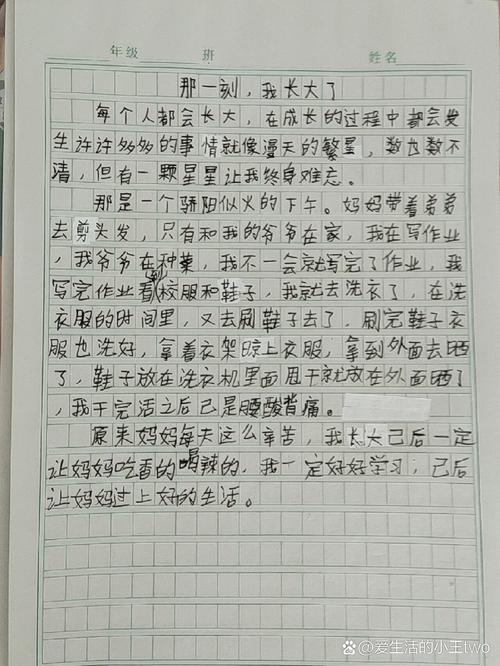 年级 班 姓名
那一刻，我长大了
每个人都会长大，在成长的过程中都会发
生许许多多的事情就像漫天的繁星，数也数不
清，但有一颗星星让我终身难忘。
那是一个骄阳似火的下午。妈妈带着弟弟
去剪头发，只有和我的爷爷在家，我在写作业
，我爷爷在种菜，我不一会就写完了作业，我
写完作业看到校服和鞋子，我就去洗衣了，在洗
衣服的时间里，又去刷鞋子去了，刷完鞋子衣
服也洗好，拿着衣架晾上衣服，拿到外面去晒
了，鞋子放在洗衣机里面甩干就放在外面晒了
，我干完活之后已是腰酸背痛。
原来妈妈每天这么辛苦，我长大己后一定
让妈妈吃香的喝辣的，我一定好好学习，己后
让妈妈过上好的生活。
@爱生活的小王two